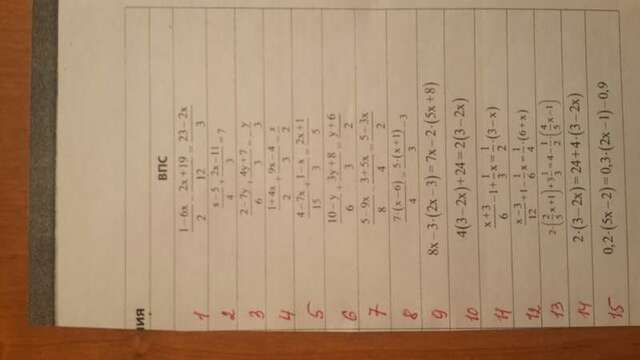 ния
ВПС
1 (1−6x)/2 − (2x+19)/12 = (23−2x)/3
2 (x−5)/4 + (2x−11)/3 = 7
3 (2−7y)/6 + (4y+7)/3 = −y/3
4 (1+4x)/2 + (9x−4)/3 = x/2
5 (4−7x)/15 + (1−x)/3 = (2x+1)/5
6 (10−y)/6 + (3y+8)/3 = (y+6)/2
7 (5−9x)/8 − (3+5x)/4 = (5−3x)/2
8 7·(x−6)/4 = 5·(x+1)/3 −3
9 8x−3·(2x−3)=7x−2·(5x+8)
10 4(3−2x)+24=2(3−2x)
11 (x+3)/6 −1+ 1/3 x = 1/2 ·(3−x)
12 (x−3)/12 +1− 1/6 x = 1/4 ·(6+x)
13 2·(2/5 x+1)+3 1/3 =4− 1/2 ·(4/5 x−1)
14 2·(3−2x)=24+4·(3−2x)
15 0,2·(5x−2)=0,3·(2x−1)−0,9